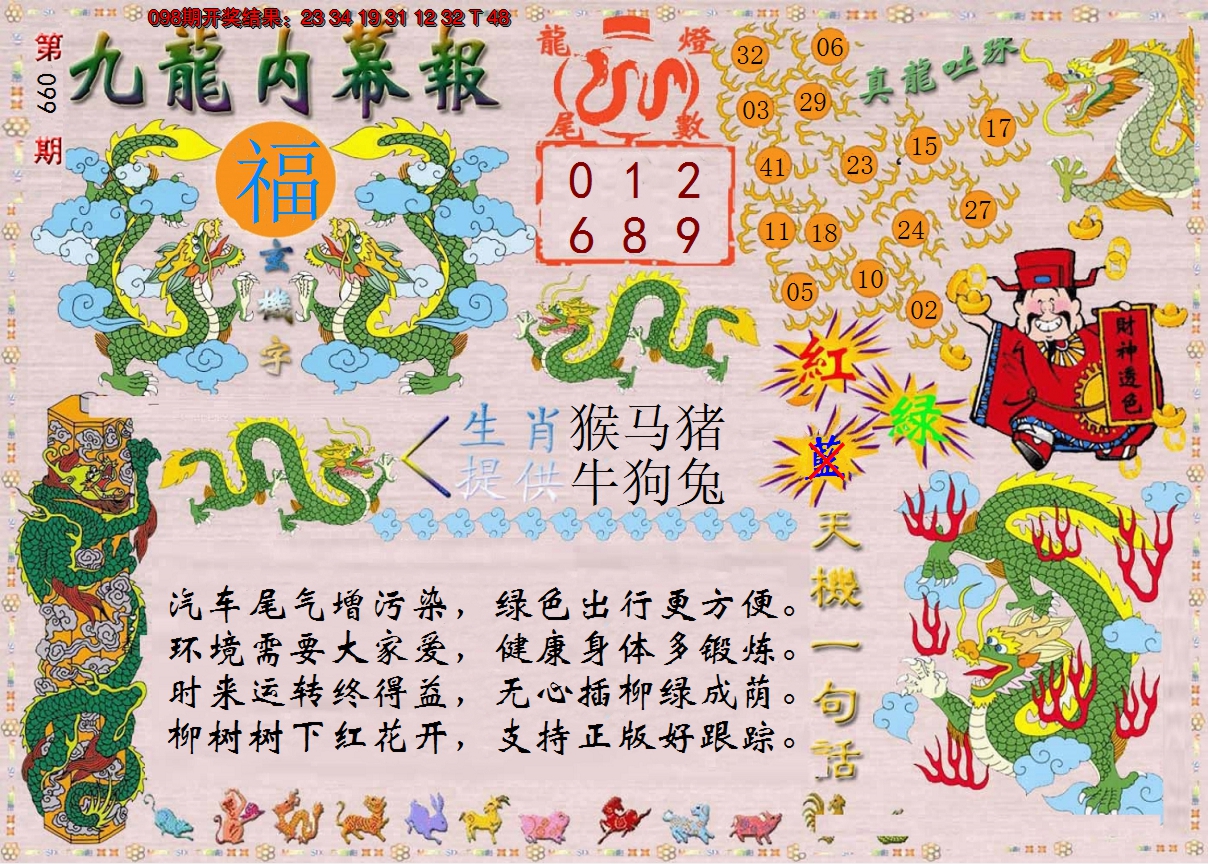 098期开奖结果：23 34 19 31 12 32 T 48
第
099
期
九龍内幕報
福
玄
機
字
龍 燈
尾 數
0 1 2
6 8 9
真龍吐珠
32 06
03 29
41 23 15 17
11 18 24 27
05 10 02
財神透色
紅
綠
藍
生肖 猴马猪
提供 牛狗兔
天機一句話
汽车尾气增污染，绿色出行更方便。
环境需要大家爱，健康身体多锻炼。
时来运转终得益，无心插柳绿成荫。
柳树树下红花开，支持正版好跟踪。